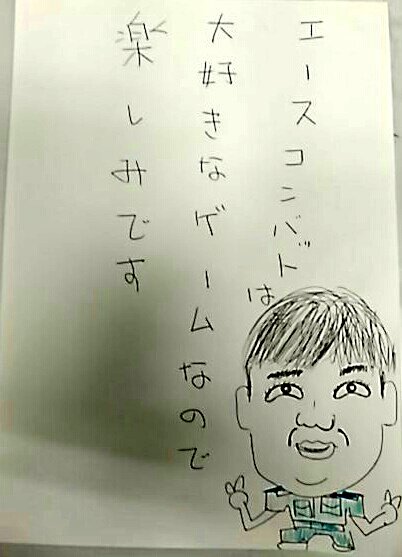 エースコンバットは
大好きなゲームなので
楽しみです